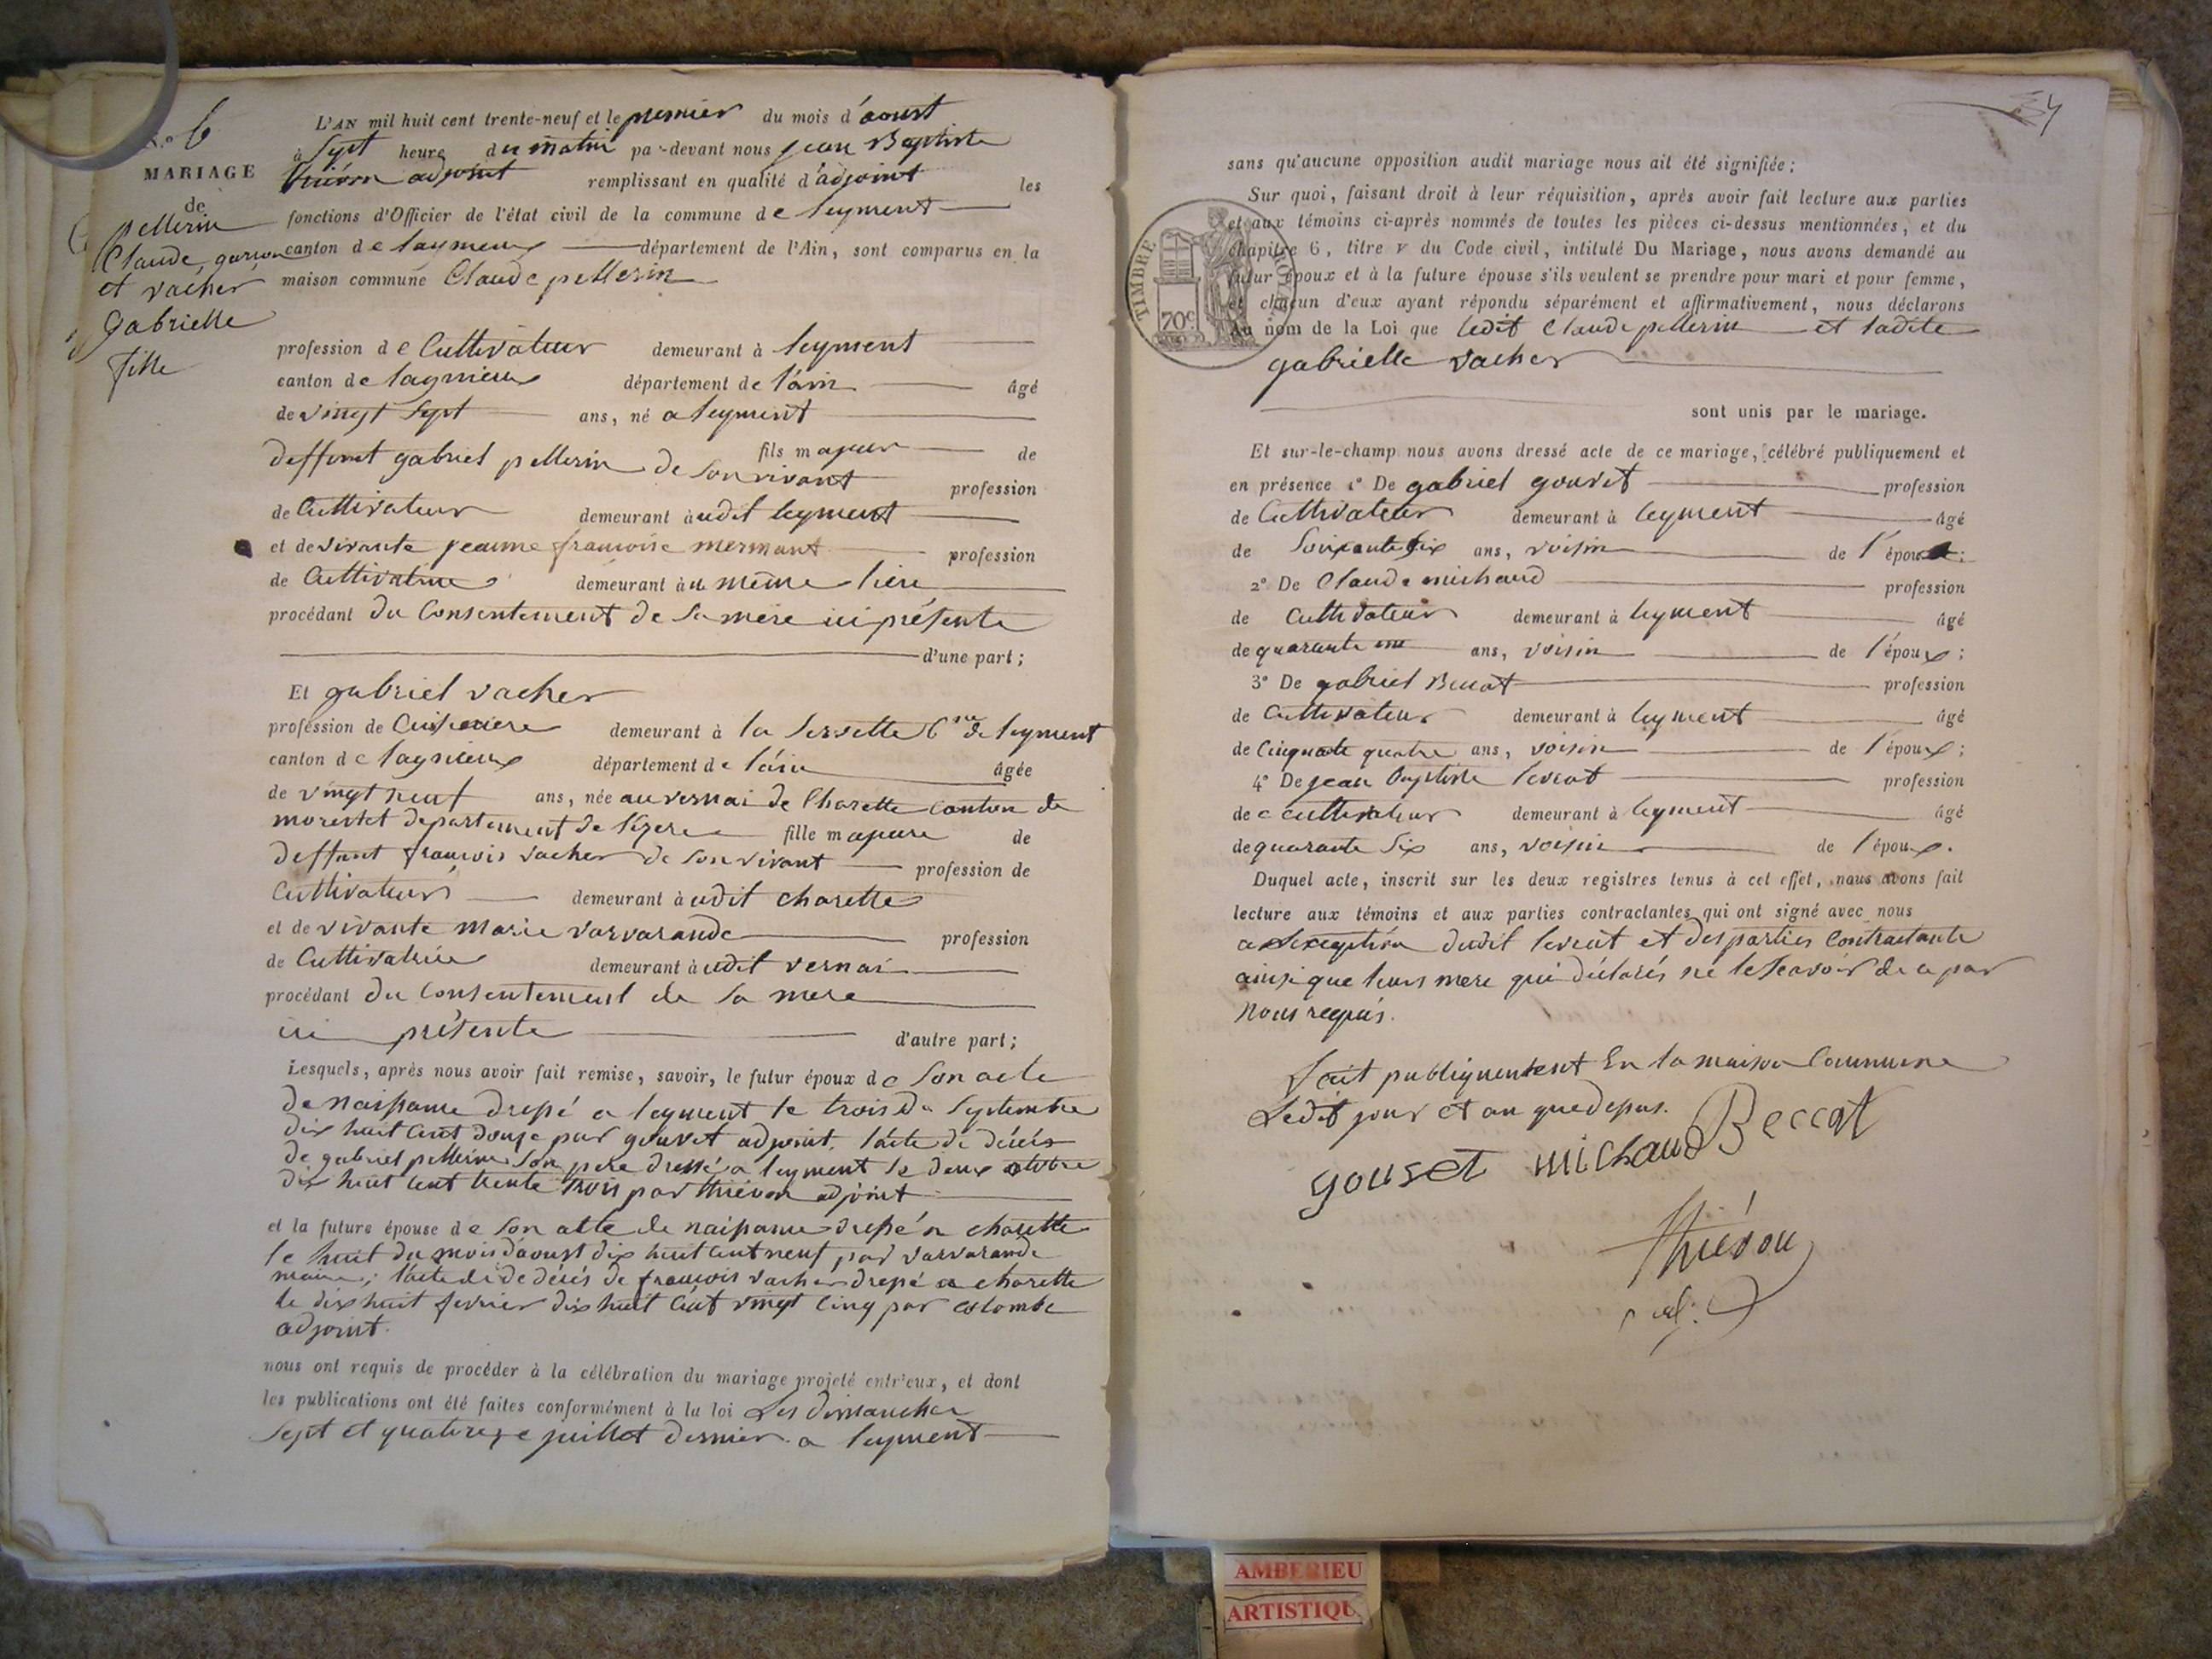 N.º 6
MARIAGE
de
pellerin
Claude, garson
et vacher
Gabrielle
fille
L'AN mil huit cent trente-neuf et le premier du mois d'aoust
à Sept heure du matin par-devant nous jean Baptiste
thiévon adjoint remplissant en qualité d'adjoint les
fonctions d'Officier de l'état civil de la commune de leyment
canton de lagnieux département de l'Ain, sont comparus en la
maison commune Claude pellerin
profession de Cultivateur demeurant à leyment
canton de lagnieux département de l'ain âgé
de vingt sept ans, né a leyment
fils majeur de
deffunt gabriel pellerin de son vivant profession
de Cultivateur demeurant àudit leyment
et de vivante jeanne francoise mermant profession
de Cultivatrice demeurant àu même lieu
procédant du Consentement de sa mère ici présente
d'une part;
Et gabriel vacher
profession de Cuisiniere demeurant à la servette Cne de leyment
canton de lagnieux département de l'ain âgée
de vingt neuf ans, née au vernai de Charette canton de
morestet departement de l'izere fille majeure de
deffunt francois vacher de son vivant profession de
Cultivateur demeurant àudit charette
et de vivante marie varvarande profession
de Cultivatrice demeurant àudit vernai
procédant du consentement de sa mere
ici présente d'autre part;
Lesquels, après nous avoir fait remise, savoir, le futur époux de son acte
de naissance dressé a leyment le trois de Septembre
dix huit cent douze par gouvet adjoint, l'acte de décés
de gabriel pellerin son pere dressé a leyment le deux octobre
dix huit cent trente trois par thiévon adjoint
et la future épouse de son acte de naissance dressé a charette
le huit du mois d'aoust dix huit cent neuf par varvarande
maire; l'acte de décés de francois vacher dressé a charette
le dix huit fevrier dix huit cent vingt cinq par colombe
adjoint.
nous ont requis de procéder à la célébration du mariage projeté entr'eux, et dont
les publications ont été faites conformément à la loi Les dimanches
Sept et quatorze juillet dernier a leyment
34
sans qu'aucune opposition audit mariage nous ait été signifiée;
Sur quoi, faisant droit à leur réquisition, après avoir fait lecture aux parties
et aux témoins ci-après nommés de toutes les pièces ci-dessus mentionnées, et du
chapitre 6, titre v du Code civil, intitulé Du Mariage, nous avons demandé au
futur époux et à la future épouse s'ils veulent se prendre pour mari et pour femme,
et chacun d'eux ayant répondu séparément et affirmativement, nous déclarons
au nom de la Loi que ledit Claude pellerin et ladite
gabrielle vacher
sont unis par le mariage.
TIMBRE ROYAL
70c
Et sur-le-champ nous avons dressé acte de ce mariage, célébré publiquement et
en présence 1º De gabriel gouvet profession
de Cultivateur demeurant à leyment âgé
de Soixante six ans, voisin de l'époux;
2º De Claude michaud profession
de Cultivateur demeurant à leyment âgé
de quarante un ans, voisin de l'époux;
3º De gabriel Beccat profession
de Cultivateur demeurant à leyment âgé
de Cinquante quatre ans, voisin de l'époux;
4º De jean Baptiste levrat profession
de cultivateur demeurant à leyment âgé
de quarante six ans, voisin de l'époux.
Duquel acte, inscrit sur les deux registres tenus à cet effet, nous avons fait
lecture aux témoins et aux parties contractantes qui ont signé avec nous
a l'exception dudit levrat et des parties contractante
ainsi que leurs mere qui déclarés né le scavoir de ce par
Nous requis.
Fait publiquement En la maison Commune
Ledit jour et an que dessus.
gouvet michaud Beccat
thiévon
adj.
AMBERIEU
ARTISTIQU